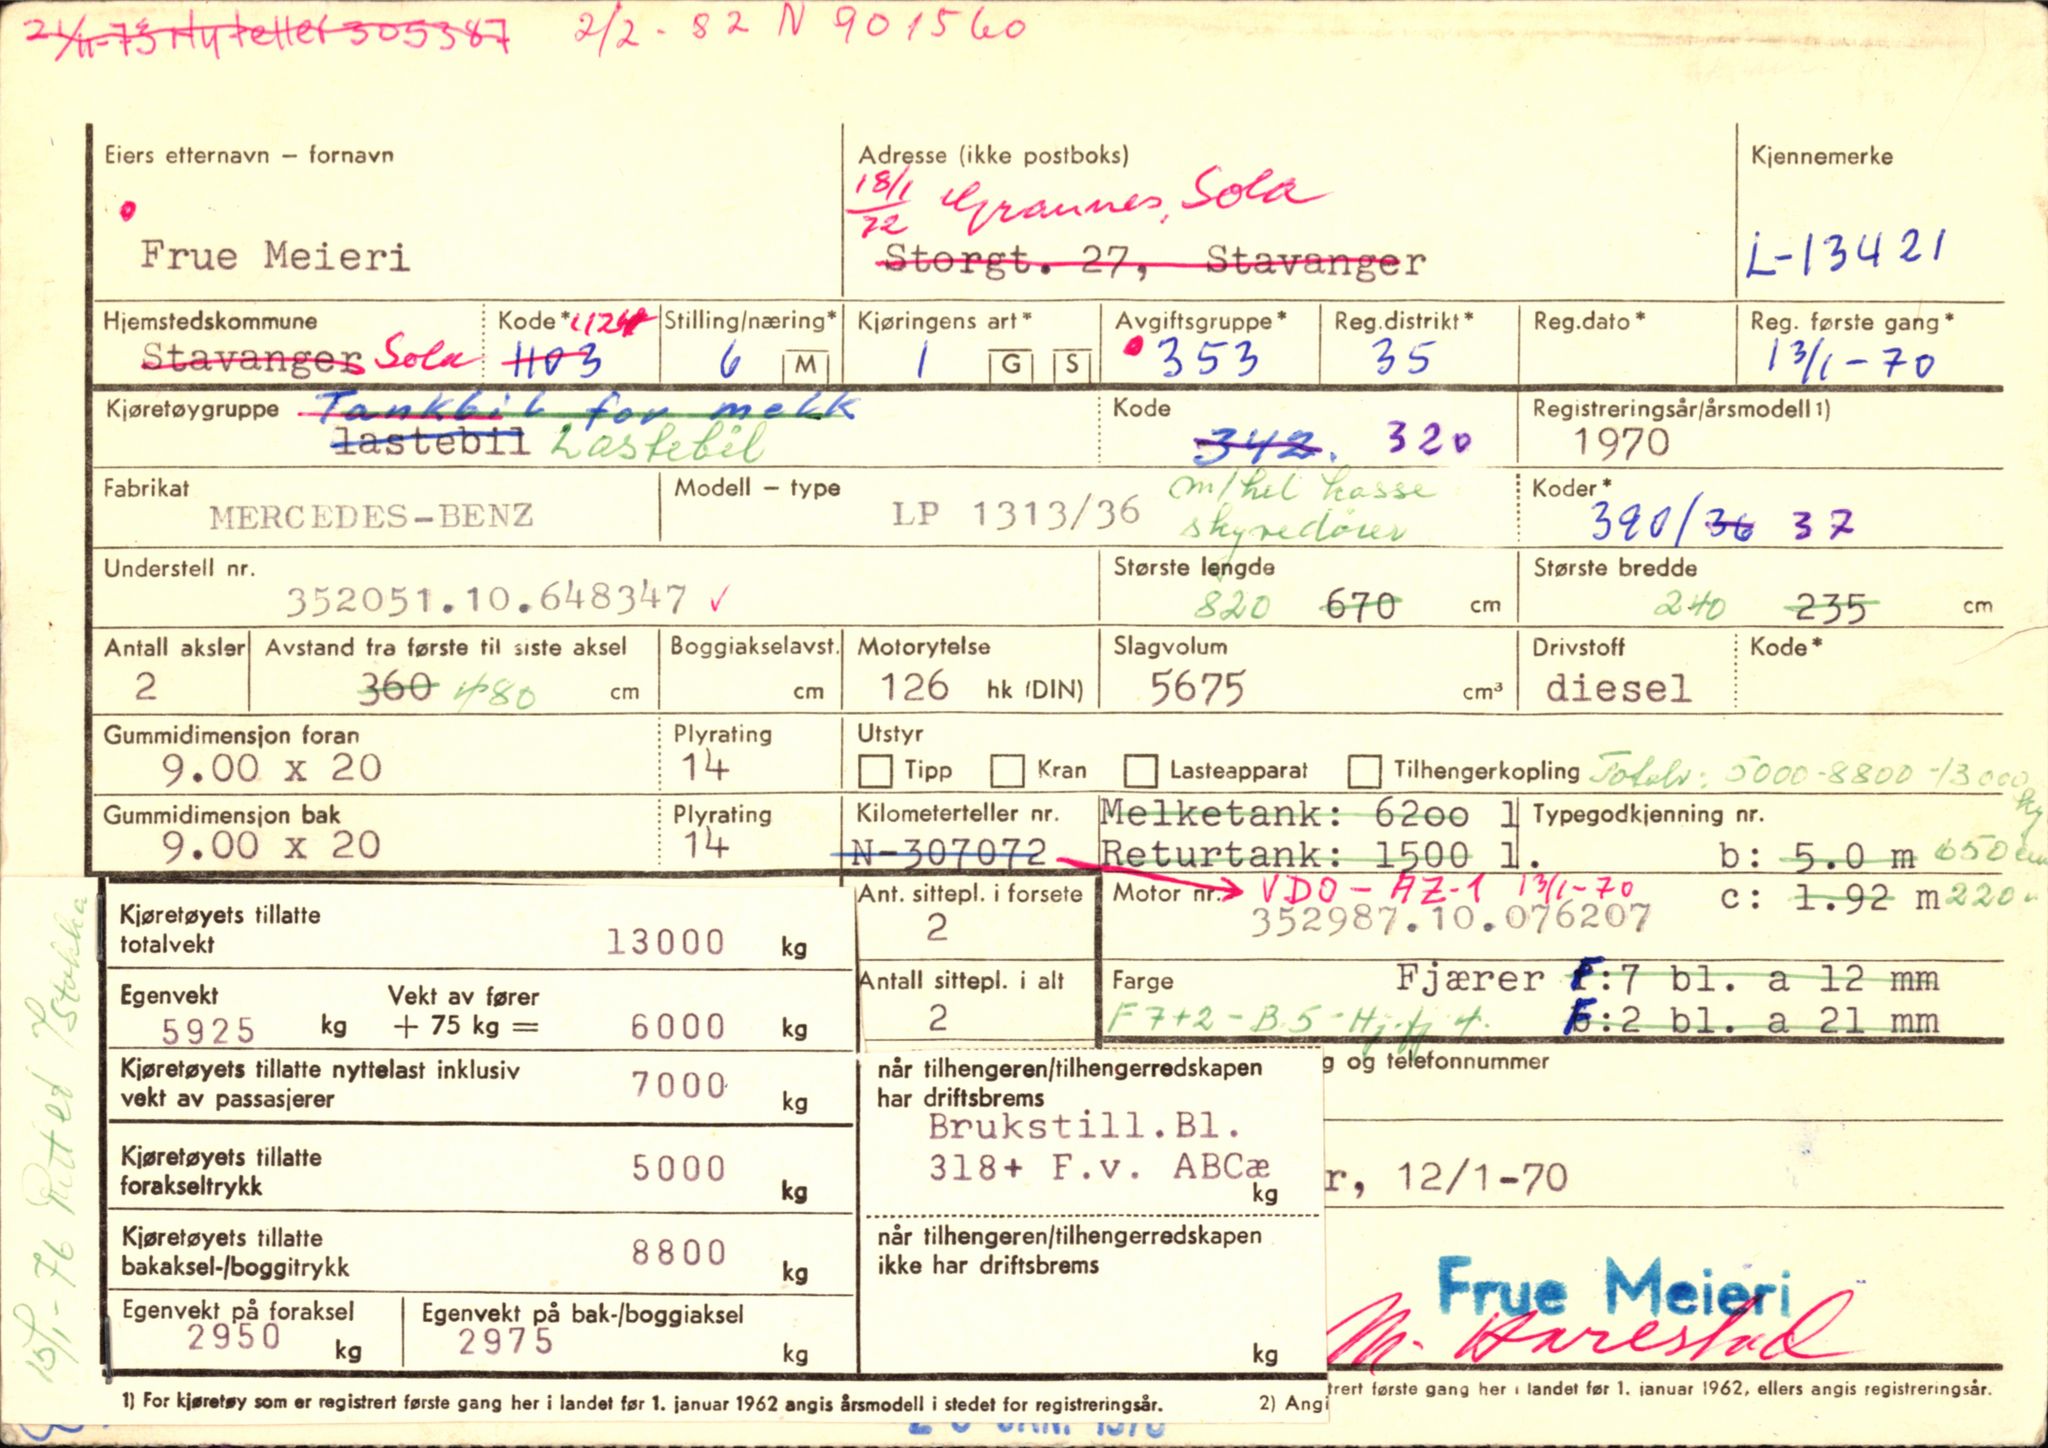 21/11-73 Ny teller 305387 2/2-82 N 901560
Eiers etternavn – fornavn
Adresse (ikke postboks)
Kjennemerke
18/1 72 Grannes, Sola
Frue Meieri
Storgt. 27, Stavanger
L-13421
Hjemstedskommune
Kode* 1124
Stilling/næring*
Kjøringens art*
Avgiftsgruppe*
Reg.distrikt*
Reg.dato*
Reg. første gang*
Stavanger Sola
1103
6 M
1 G S
353
35
13/1-70
Kjøretøygruppe Tankbil for melk
Kode
Registreringsår/årsmodell 1)
lastebil Lastebil
342. 320
1970
Fabrikat
Modell – type
m/hel kasse
Koder*
MERCEDES-BENZ
LP 1313/36
skyvedører
390/36 37
Understell nr.
Største lengde
Største bredde
352051.10.648347 ✓
820 670 cm
240 235 cm
Antall aksler
Avstand fra første til siste aksel
Boggiakselavst.
Motorytelse
Slagvolum
Drivstoff
Kode*
2
360 480 cm
cm
126 hk (DIN)
5675 cm³
diesel
Gummidimensjon foran
Plyrating
Utstyr
9.00 x 20
14
Tipp Kran Lasteapparat Tilhengerkopling Totalv: 5000-8800-13000
Gummidimensjon bak
Plyrating
Kilometerteller nr.
Melketank: 6200 l
Typegodkjenning nr.
9.00 x 20
14
N-307072
Returtank: 1500 l.
b: 5.0 m 650 cm
Kjøretøyets tillatte totalvekt
13000 kg
Ant. sittepl. i forsete
2
Motor nr. VDO - AZ-1 13/1-70
352987.10.076207
c: 1.92 m 220
Egenvekt
5925 kg
Vekt av fører
+ 75 kg =
6000 kg
Antall sittepl. i alt
2
Farge
Fjærer F:7 bl. a 12 mm
F7+2-B.5-Hj.fj 4.
:2 bl. a 21 mm
Kjøretøyets tillatte nyttelast inklusiv
vekt av passasjerer
7000 kg
når tilhengeren/tilhengerredskapen
har driftsbrems
g og telefonnummer
Brukstill.Bl.
318+ F.v. ABCæ
kg
Kjøretøyets tillatte
forakseltrykk
5000 kg
r, 12/1-70
Kjøretøyets tillatte
bakaksel-/boggitrykk
8800 kg
når tilhengeren/tilhengerredskapen
ikke har driftsbrems
kg
Egenvekt på foraksel
2950 kg
Egenvekt på bak-/boggiaksel
2975 kg
Frue Meieri
M. Harestad
1) For kjøretøy som er registrert første gang her i landet før 1. januar 1962 angis årsmodell i stedet for registreringsår.
2) Angi
trert første gang her i landet før 1. januar 1962, ellers angis registreringsår.
15/1-76